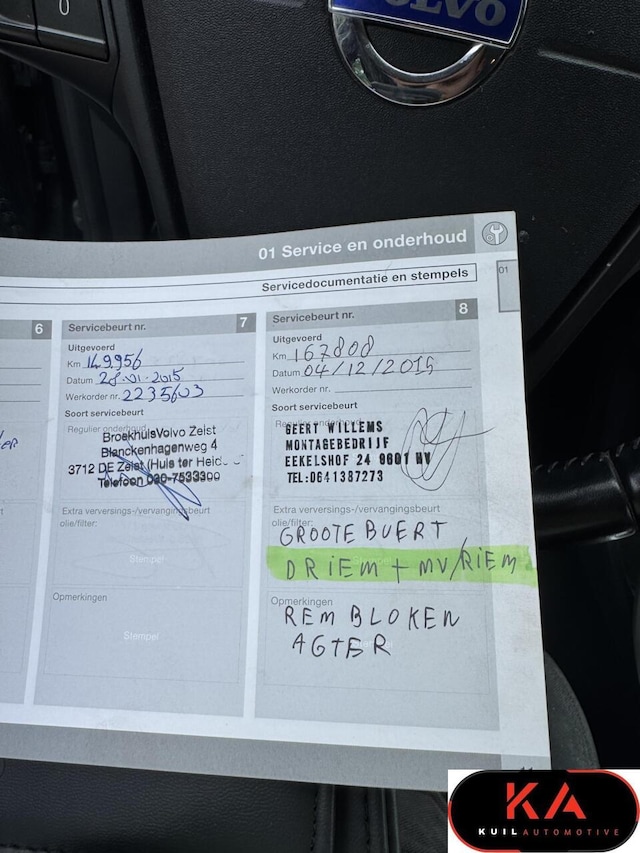 0
VOLVO
01 Service en onderhoud
Servicedocumentatie en stempels
01
6
Servicebeurt nr. 7
Uitgevoerd
Km 149.956
Datum 28.VI.2015
Werkorder nr. 2235603
Soort servicebeurt
Regulier onderhoud
BroekhuisVolvo Zeist
Blanckenhagenweg 4
3712 DE Zeist (Huis ter Heid
Telefoon 030-7533300
Extra verversings-/vervangingsbeurt
olie/filter:
Stempel
Opmerkingen
Stempel
Servicebeurt nr. 8
Uitgevoerd
Km 167808
Datum 04/12/2015
Werkorder nr.
Soort servicebeurt
Regulier onderhoud
GEERT WILLEMS
MONTAGEBEDRIJF
EEKELSHOF 24 9801 HV
TEL:0641387273
Extra verversings-/vervangingsbeurt
olie/filter:
GROOTE BUERT
DRIEM + MV/RIEM
Opmerkingen
REM BLOKEN
AGTER
KA
KUILAUTOMOTIVE